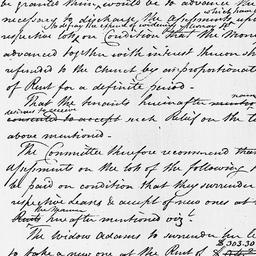 be granted them, would be to advance the
which may be
necessary to discharge the assessments upon
respective lots on Condition that the Mone
advanced together with interest thereon sh
refunded to the Church by a proportionat
of Rent for a definite period -
That the tenants hereinafter
consented to accept such Relief on the t
above mentioned -
The Committee therefore recommend that
assessments on the lots of the following
be paid on condition that they surrender
respective leases & accept of new ones at
Rents hereafter mentioned viz!
The Widow Adams to surrender her le
$303.30
to take a new one at the Rent of